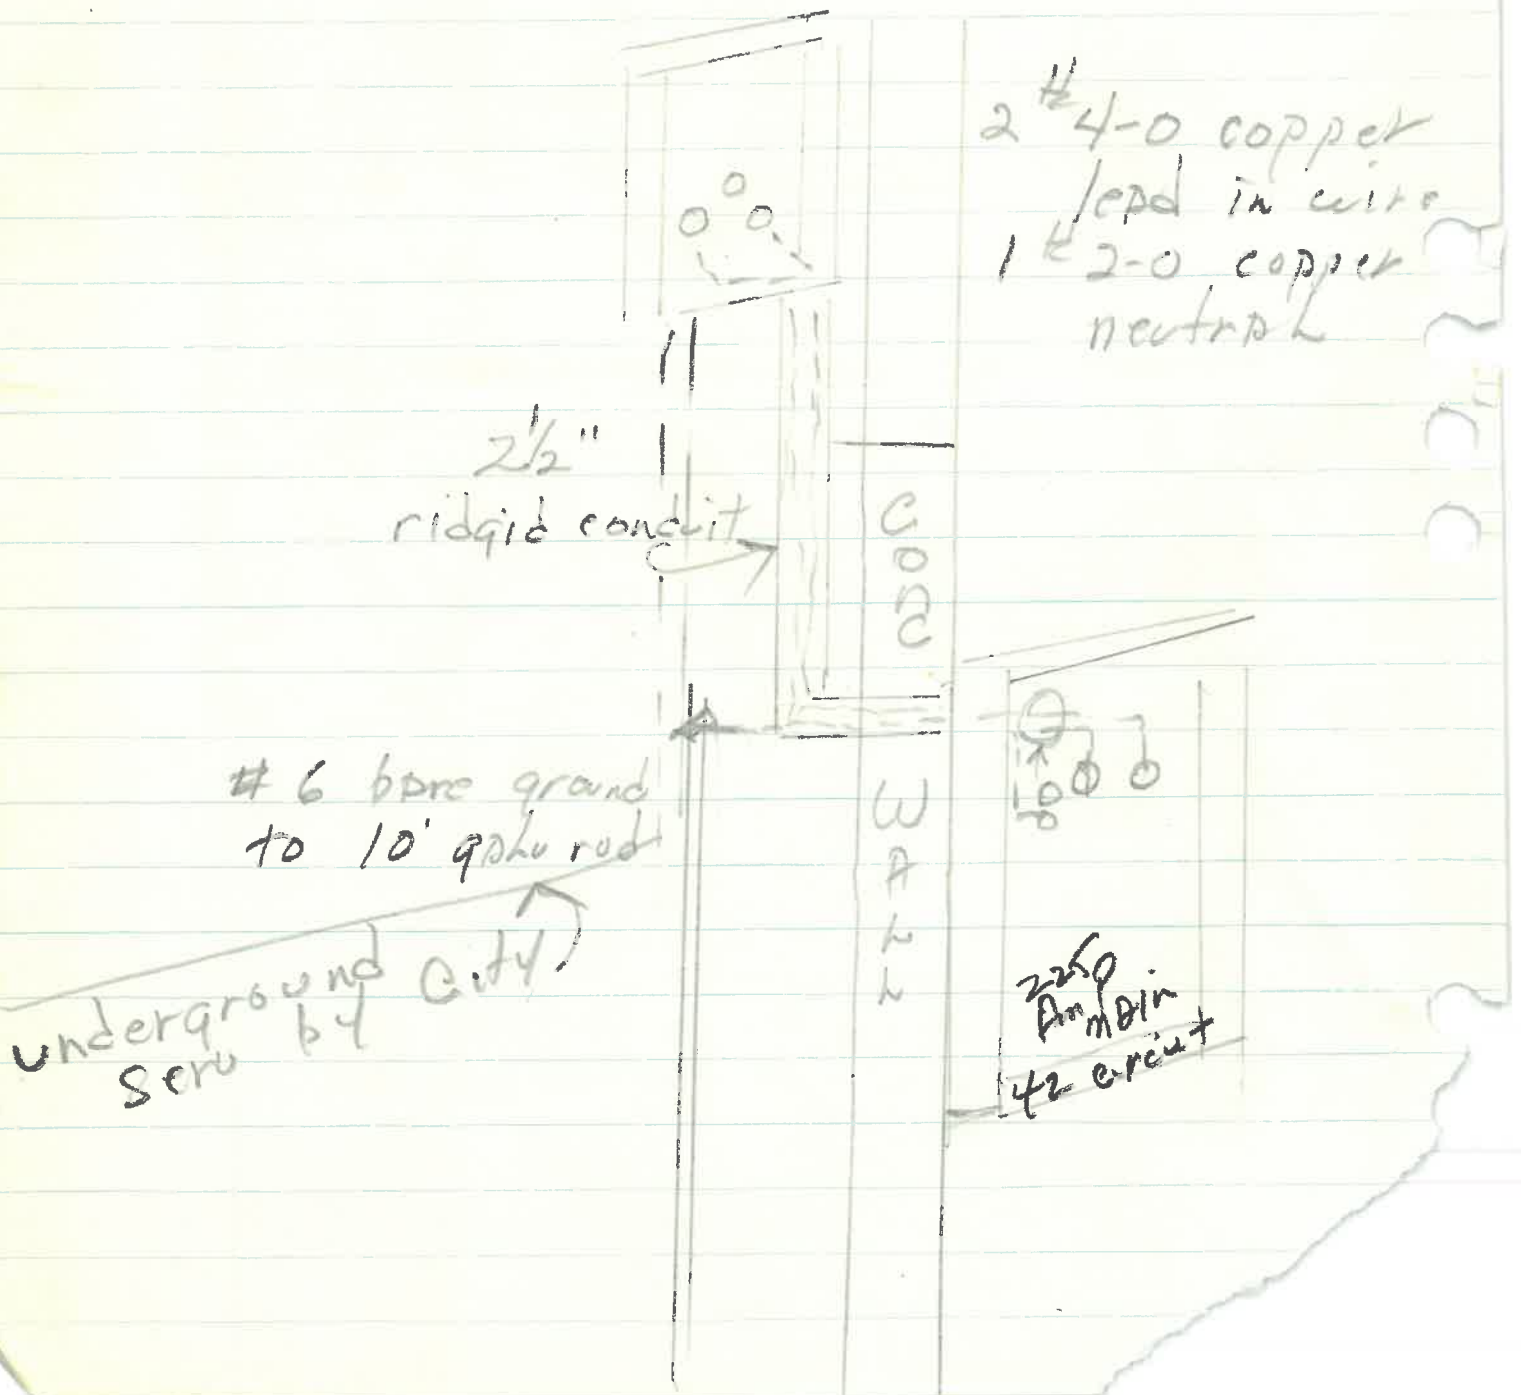 2 #4-0 copper
lead in wire
1 # 2-0 copper
neutral
2 1/2"
ridgid conduit
CONC
WALL
# 6 bare ground
to 10' galv rod
underground
serv by City
main
42